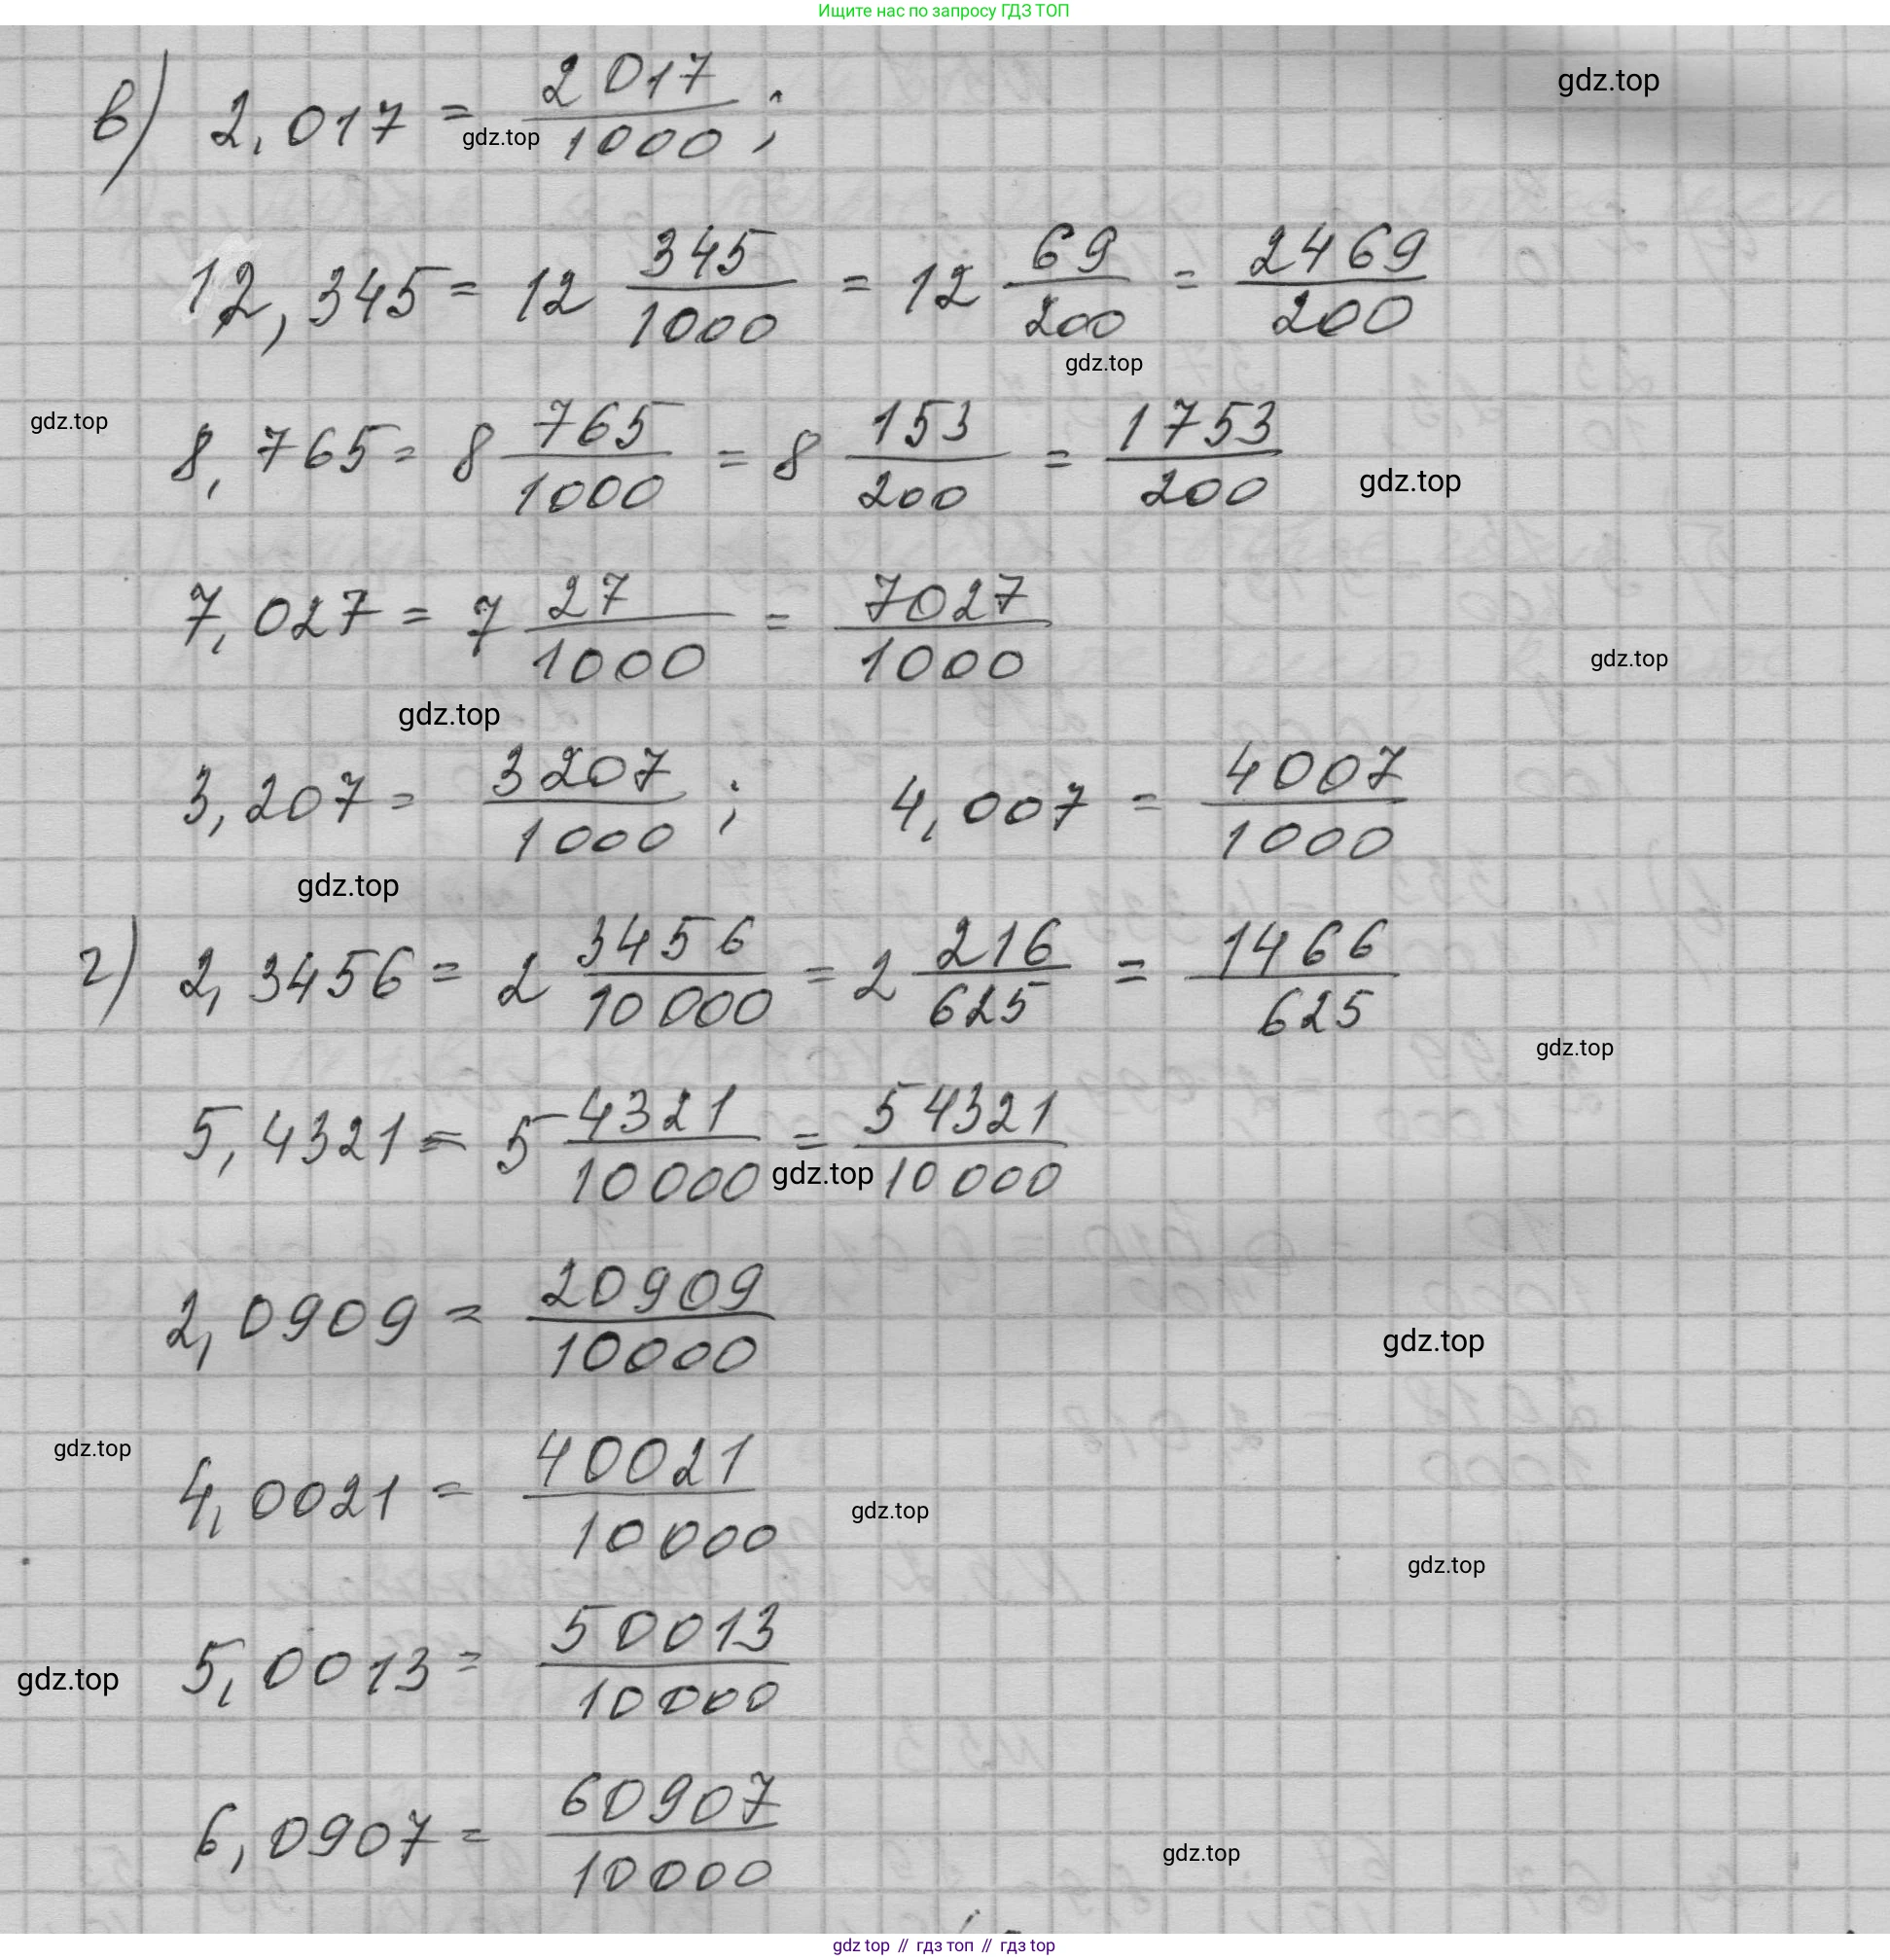 Ищите нас по запросу ГДЗ ТОП
gdz.top
в) 2,017 = 2017/1000 ;
gdz.top
12,345 = 12 345/1000 = 12 69/200 = 2469/200
gdz.top
gdz.top
8,765 = 8 765/1000 = 8 153/200 = 1753/200
gdz.top
7,027 = 7 27/1000 = 7027/1000
gdz.top
gdz.top
3,207 = 3207/1000 ; 4,007 = 4007/1000
gdz.top
г) 2,3456 = 2 3456/10000 = 2 216/625 = 1466/625
gdz.top
5,4321 = 5 4321/10000 = 54321/10000
gdz.top
2,0909 = 20909/10000
gdz.top
gdz.top
4,0021 = 40021/10000
gdz.top
gdz.top
5,0013 = 50013/10000
gdz.top
6,0907 = 60907/10000
gdz.top
gdz top // гдз топ // гдз top